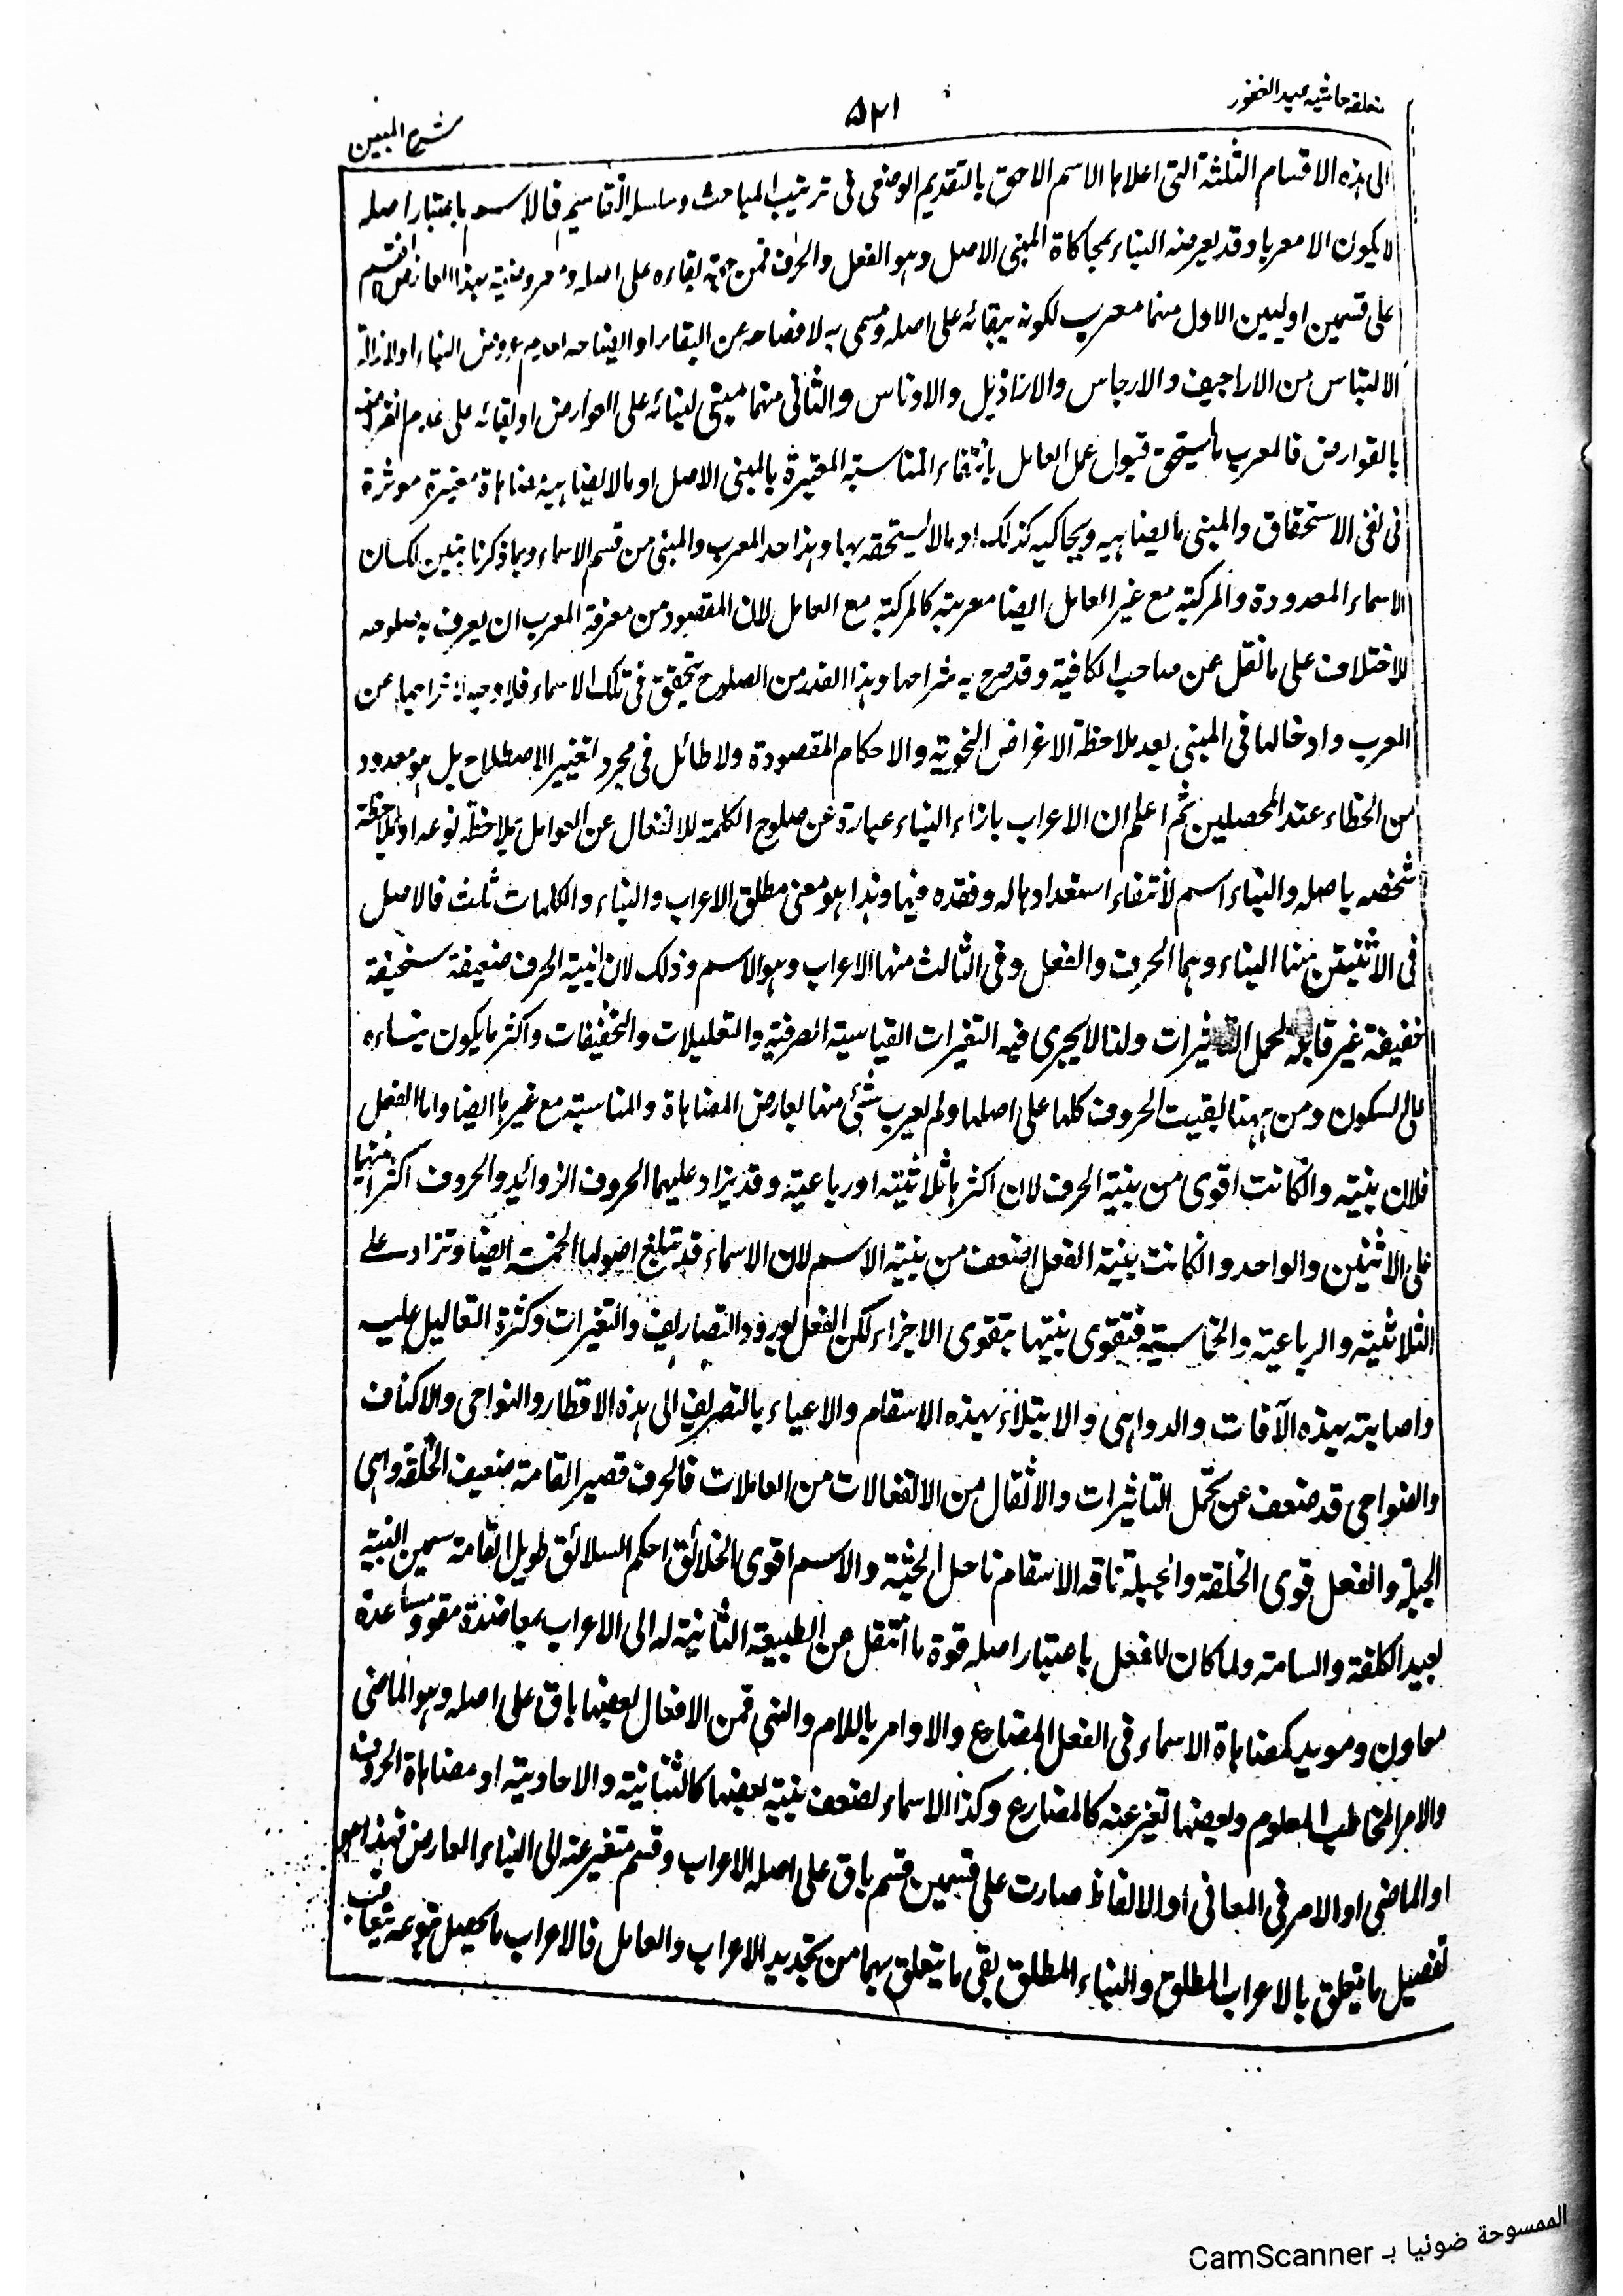 متعلقه حاشيه عبد الغفور
۵۲۱
شرح المبين
الى هذه الاقسام الثلثة التى اعلاها الاسم الاحق بالتقديم الوضعى فى ترتيب المباحث وسلسلة الاقاسيم فالاسم باعتبار اصله
لا يكون الا معربا وقد يعرضه البناء بمحاكاة المبنى الاصل وهو الفعل والحرف فمن جهة بقاءه على اصله ومعروضيته بهذا العارض انقسم
على قسمين اوليين الاول منهما معرب لكونه ببقائه على اصله ومسمى به لافصاحه عن البقاء او ايضاحه لعدم عروض البناء او لازالة
الالتباس من الاراجيف والارجاس والاراذيل والاوناس والثانى منهما مبنى لبنائه على العوارض او لبقائه على عدم
بالعوارض فالمعرب ما يستحق قبول عمل العامل بانتفاء المناسبة المعتبرة بالمبنى الاصل او ما لا يضاهيه مضاهاة معتبرة موثرة
فى نفى الاستحقاق والمبنى ما يضاهيه ويحاكيه كذلك او ما لا يستحقه بها وهذا حد المعرب والمبنى من قسم الاسماء وبما ذكرنا تبين لك ان
الاسماء المعدودة والمركبة مع غير العامل ايضا معربة كالمركبة مع العامل لان المقصود من معرفة المعرب ان يعرف به صلوحه
للاختلاف على ما نقل عن صاحب الكافية وقد صرح به شراحها وهذا القدر من الصلوح يتحقق فى تلك الاسماء فلا وجه لاخراجها عن
المعرب وادخالها فى المبنى بعد ملاحظة الاغراض النحوية والاحكام المقصودة ولا طائل فى مجرد تغيير الاصطلاح بل هو معدود
من الخطاء عند المحصلين ثم اعلم ان الاعراب بازاء البناء عبارة عن صلوح الكلمة للانفعال عن العوامل بملاحظة نوعه او بملاحظة
شخصه باصله والبناء اسم لانتفاء استعدادها له وفقده فيها وهذا هو معنى مطلق الاعراب والبناء والكلمات ثلث فالاصل
فى الاثنين منها البناء وهما الحرف والفعل وفى الثالث منها الاعراب وهو الاسم وذلك لان ابنية الحرف ضعيفة سخيفة
خفيفة غير قابلة لحمل التاثيرات ولذا لا يجرى فيه التغيرات القياسية الصرفية والتعليلات والتخفيفات واكثر ما يكون بناءه
على السكون ومن ههنا بقيت الحروف كلها على اصلها ولم يعرب شئ منها بعارض المضاهاة والمناسبة مع غيرها ايضا واما الفعل
فلان بنيته وان كانت اقوى من بنية الحرف لان اكثرها ثلاثية او رباعية وقد يزاد عليها الحروف الزوائد والحروف اكثر ابنيتها
على الاثنين والواحد وان كانت بنية الفعل اضعف من بنية الاسم لان الاسماء قد تبلغ اصولها الخمسة ايضا وتزاد على
الثلاثية والرباعية والخماسية فتقوى بنيتها بتقوى الاجزاء لكن الفعل لورود التصاريف والتغيرات وكثرة التعاليل عليه
واصابته بهذه الآفات والدواهى والابتلاء بهذه الاسقام والاعياء بالتصريف الى هذه الاقطار والنواحى والاكناف
والضواحى قد ضعف عن تحمل التاثيرات والاثقال من الانفعالات من العاملات فالحرف قصير القامة ضعيف الخلقة واهى
الجبلة والفعل قوى الخلقة والجبلة ناقه الاسقام ناحل الجثة والاسم اقوى الخلائق احكم السلائق طويل القامة سمين البنية
بعيد الكلفة والسامة ولما كان للفعل باعتبار اصله قوة ما انتقل عن الطبيعة الثانية له الى الاعراب بمعاضدة مقو ومساعدة
معاون ومويد كمضاهاة الاسماء فى الفعل المضارع والاوامر باللام والنهى فمن الافعال بعضها باق على اصله وهو الماضى
والامر المخاطب المعلوم وبعضها تغير عنه كالمضارع وكذا الاسماء لضعف بنية بعضها كالثنائية والاحادية او مضاهاة الحروف
او الماضى او الامر فى المعانى او الالفاظ صارت على قسمين قسم باق على اصله الاعراب وقسم متغير عنه الى البناء العارض فهذا هو
تفصيل ما يتعلق بالاعراب المطلق والبناء المطلق بقى ما يتعلق بهما من تحديد الاعراب والعامل فالاعراب ما يحصل بنوعه تعاقب
الممسوحة ضوئيا بـ CamScanner